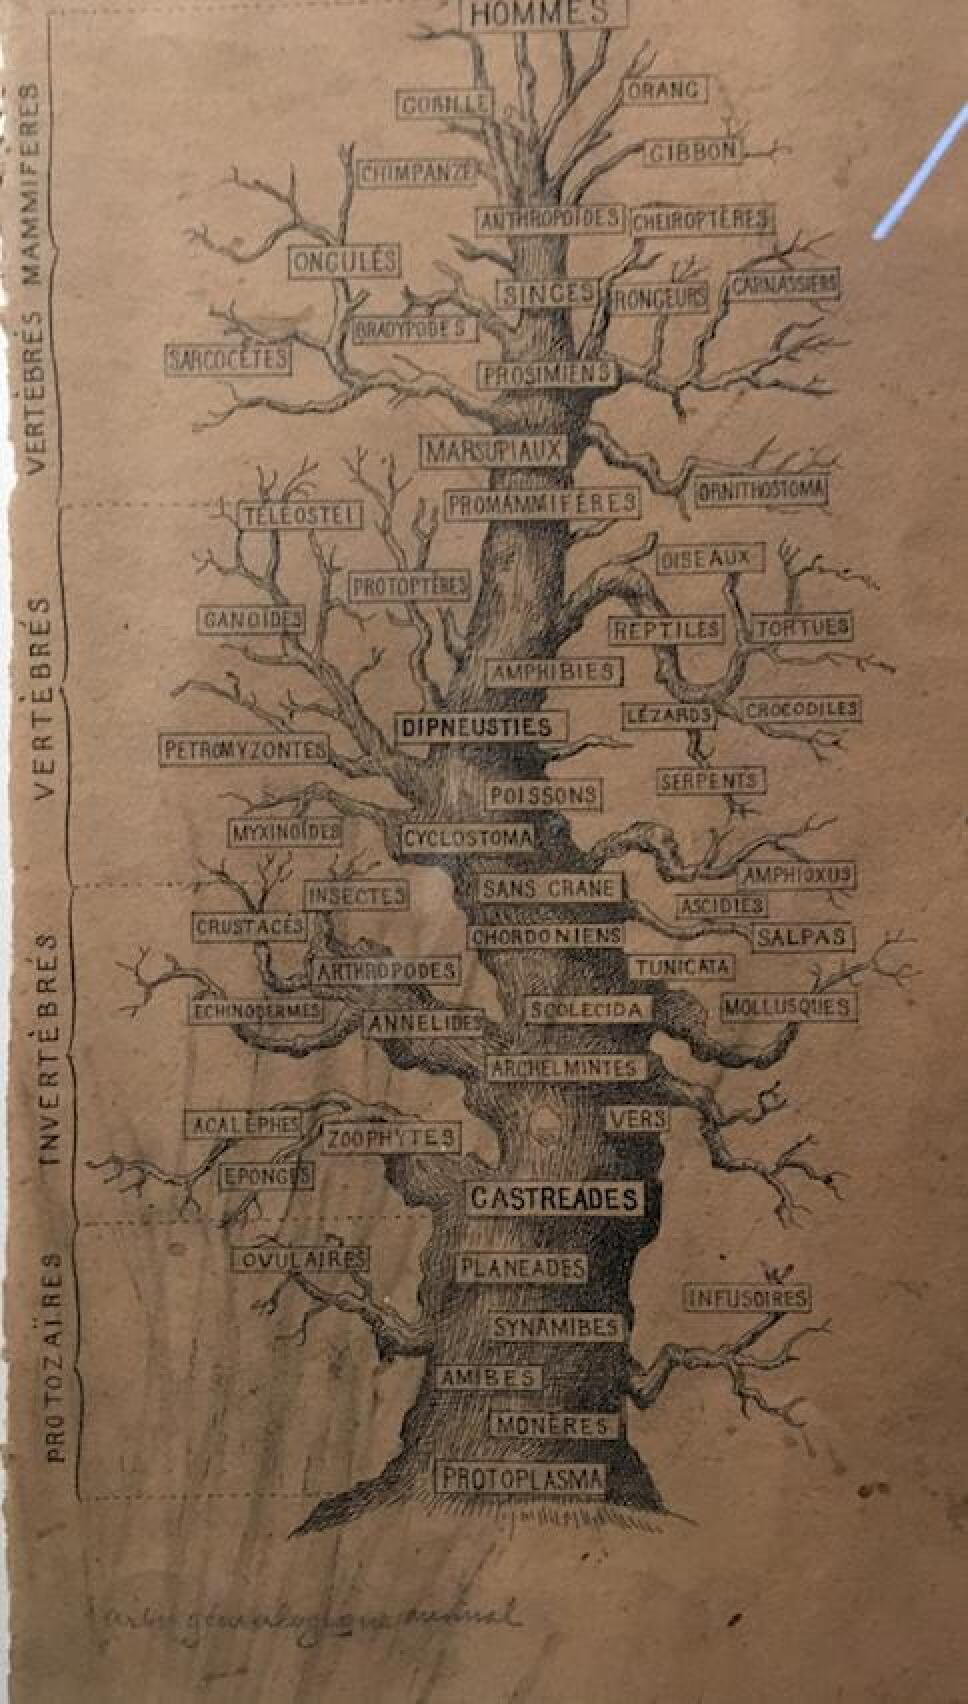 HOMMES
ORANG
GORILLE
GIBBON
CHIMPANZÉ
ANTHROPOÏDES
CHEIROPTÈRES
ONGULÉS
SINGES
RONGEURS
CARNASSIERS
BRADYPODES
SARCOCÈTES
PROSIMIENS
MARSUPIAUX
ORNITHOSTOMA
PROMAMMIFÈRES
TÉLÉOSTEI
OISEAUX
PROTOPTÈRES
GANOÏDES
REPTILES
TORTUES
AMPHIBIES
LÉZARDS
CROCODILES
DIPNEUSTIES
PETROMYZONTES
SERPENTS
POISSONS
MYXINOÏDES
CYCLOSTOMA
AMPHIOXUS
SANS CRANE
INSECTES
ASCIDIES
CRUSTACÉS
CHORDONIENS
SALPAS
ARTHROPODES
TUNICATA
ECHINODERMES
SCOLECIDA
MOLLUSQUES
ANNELIDES
ARCHELMINTES
ACALÈPHES
VERS
ZOOPHYTES
EPONGES
CASTREADES
OVULAIRES
PLANEADES
INFUSOIRES
SYNAMIBES
AMIBES
MONÈRES
PROTOPLASMA
VERTÈBRÉS MAMMIFÈRES
VERTÈBRÉS
INVERTÈBRÉS
PROTOZAÏRES
arbre généalogique animal